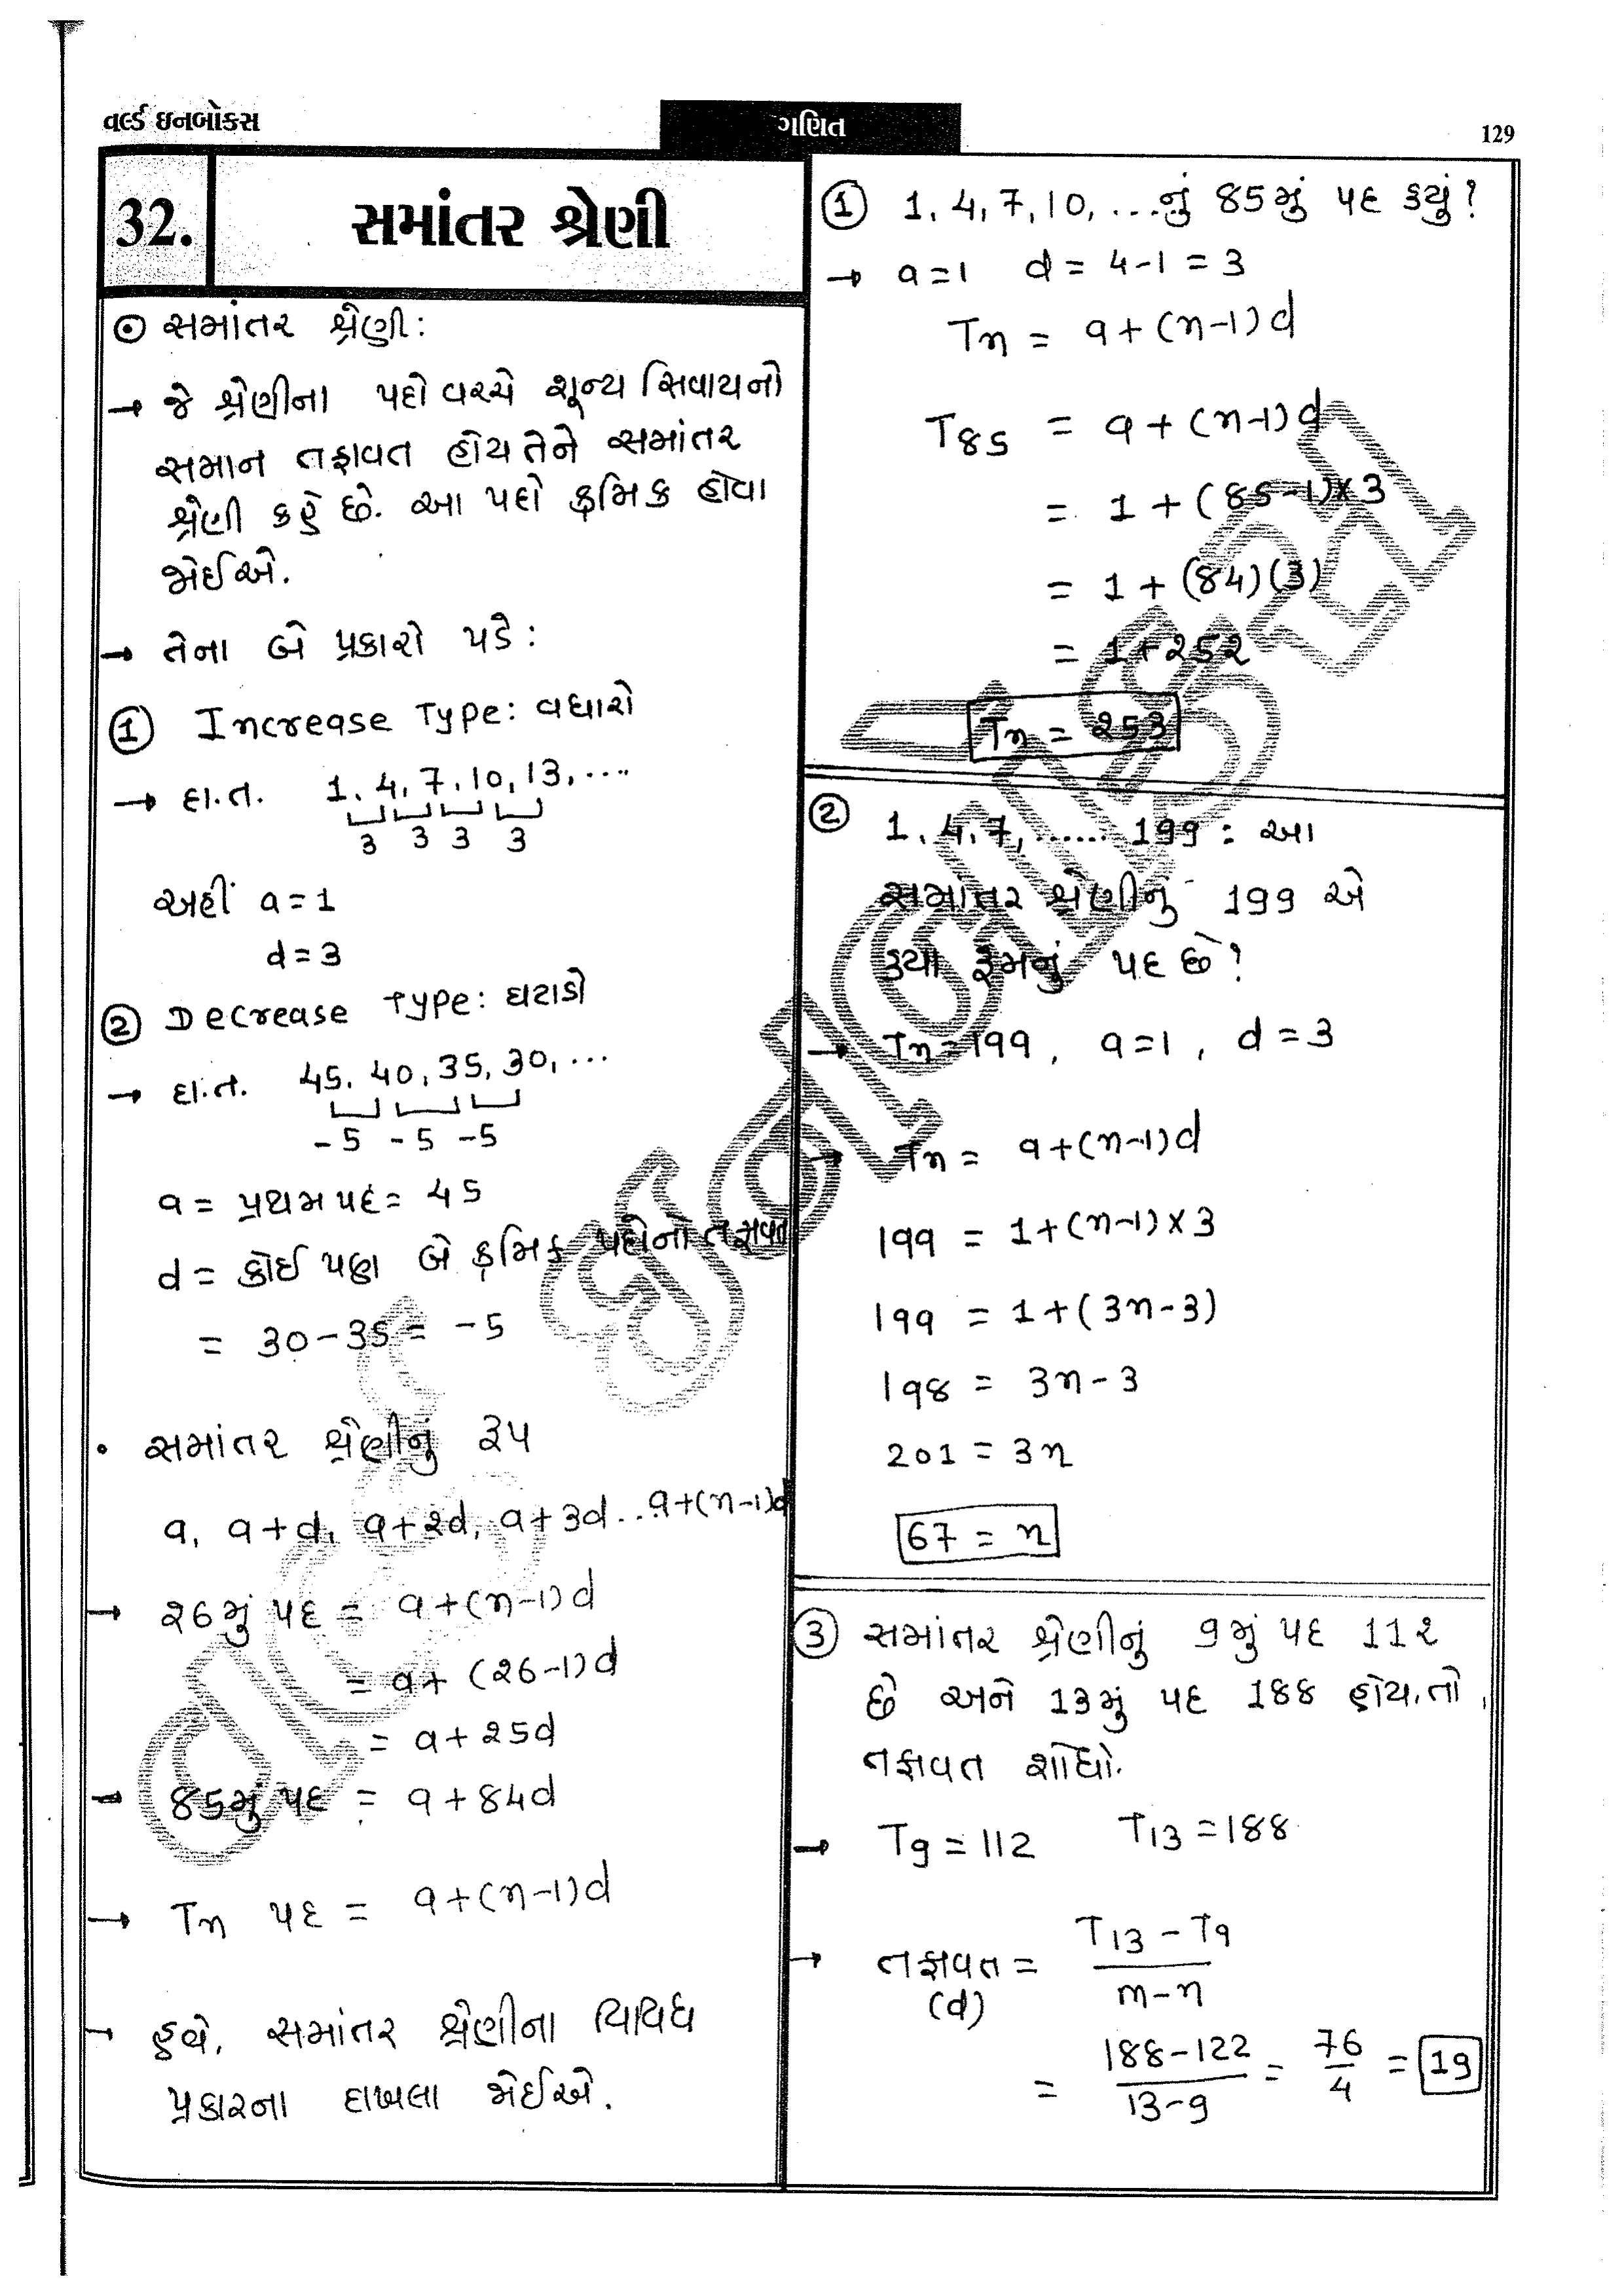 વર્લ્ડ ઇનબોક્સ
ગણિત
129
32.
સમાંતર શ્રેણી
⊙ સમાંતર શ્રેણી:
→ જે શ્રેણીના પદો વચ્ચે શૂન્ય સિવાયનો
સમાન તફાવત હોય તેને સમાંતર
શ્રેણી કહે છે. આ પદો ક્રમિક હોવા
જોઈએ.
→ તેના બે પ્રકારો પડે:
① Increase Type: વધારો
→ દા.ત. 1, 4, 7, 10, 13, ....
3 3 3 3
અહીં a = 1
d = 3
② Decrease Type: ઘટાડો
→ દા.ત. 45, 40, 35, 30, ...
-5 -5 -5
a = પ્રથમ પદ = 45
d = કોઈ પણ બે ક્રમિક પદોનો તફાવત
= 30-35 = -5
• સમાંતર શ્રેણીનું રૂપ
a, a+d, a+2d, a+3d...a+(n-1)d
→ 26મું પદ = a+(n-1)d
= a+ (26-1)d
= a+25d
→ 85મું પદ = a+84d
→ Tn પદ = a+(n-1)d
→ હવે, સમાંતર શ્રેણીના વિવિધ
પ્રકારના દાખલા જોઈએ.
① 1, 4, 7, 10, ...નું 85મું પદ કયું?
→ a=1 d = 4-1 = 3
Tn = a+(n-1)d
T85 = a+(n-1)d
= 1+(85-1)×3
= 1+(84)(3)
= 1+252
Tn = 253
② 1, 4, 7, ...... 199 : આ
સમાંતર શ્રેણીનું 199 એ
કયા ક્રમનું પદ છે?
→ Tn=199, a=1, d=3
→ Tn = a+(n-1)d
199 = 1+(n-1)×3
199 = 1+(3n-3)
198 = 3n-3
201 = 3n
67 = n
③ સમાંતર શ્રેણીનું 9મું પદ 112
છે અને 13મું પદ 188 હોય, તો
તફાવત શોધો.
→ T9 = 112 T13 = 188
→ તફાવત = T13 - T9 / m-n
(d)
= 188-122 / 13-9 = 76 / 4 = 19